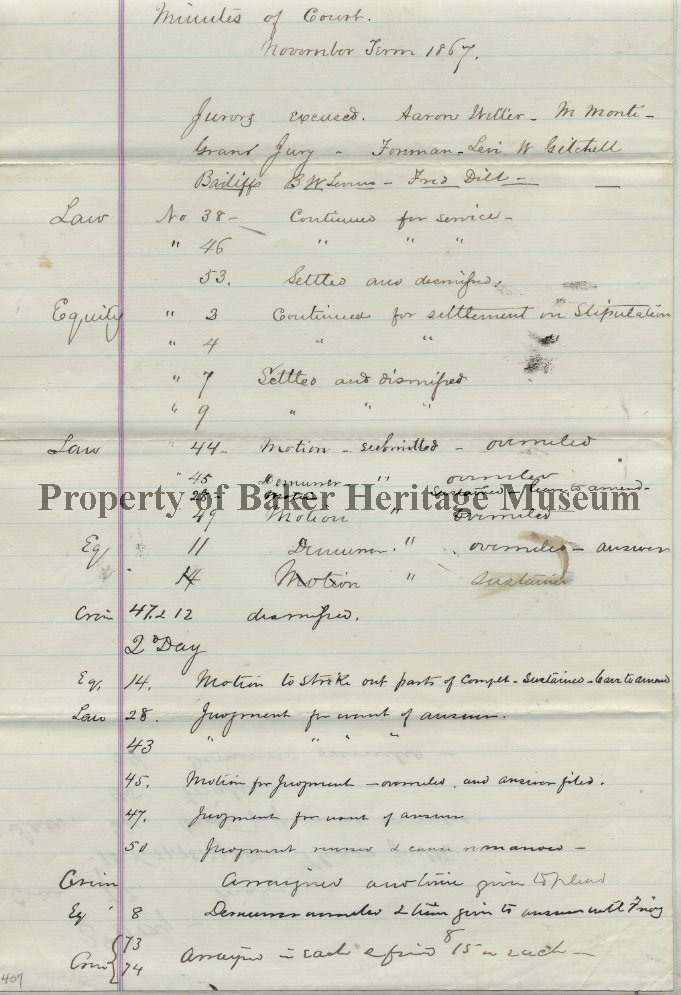 Minutes of Court.
November Term 1867.
Jurors excused. Aaron Weller - M Monti-
Grand Jury - Forman - Levi W Gitchell
Bailiffs B W - Fred Dill -
Law No 38 - Continued for service -
" 46 " " "
53. Settled and dismissed.
Equity " 2 Continued for settlement on Stipulation
" 4 " " "
" 7 Settled and dismissed
" 9 " " "
Law " 44 - Motion - submitted - overruled
" 45 Demurrer - " overruled
28 sustained - leave to amend -
Property of Baker Heritage Museum
49 Motion " overruled
Eq, 11 Demurrer " overruled - answer
" 14 Motion " sustained
Crim 47 & 12 dismissed.
2d Day
Eq, 14. Motion to strike out parts of complt - sustained - leave to amend
Law 28. Judgment for want of answer.
43 " " " "
45. Motion for Judgment - overruled. and answer filed.
47. Judgment for want of answer
50 Judgment reversed & cause remanded -
Crim Arraigned and time given to plead
Eq 8 Demurrer overruled & time given to answer until
Crim { 73
74 in each & fined $ 15 in each -
407